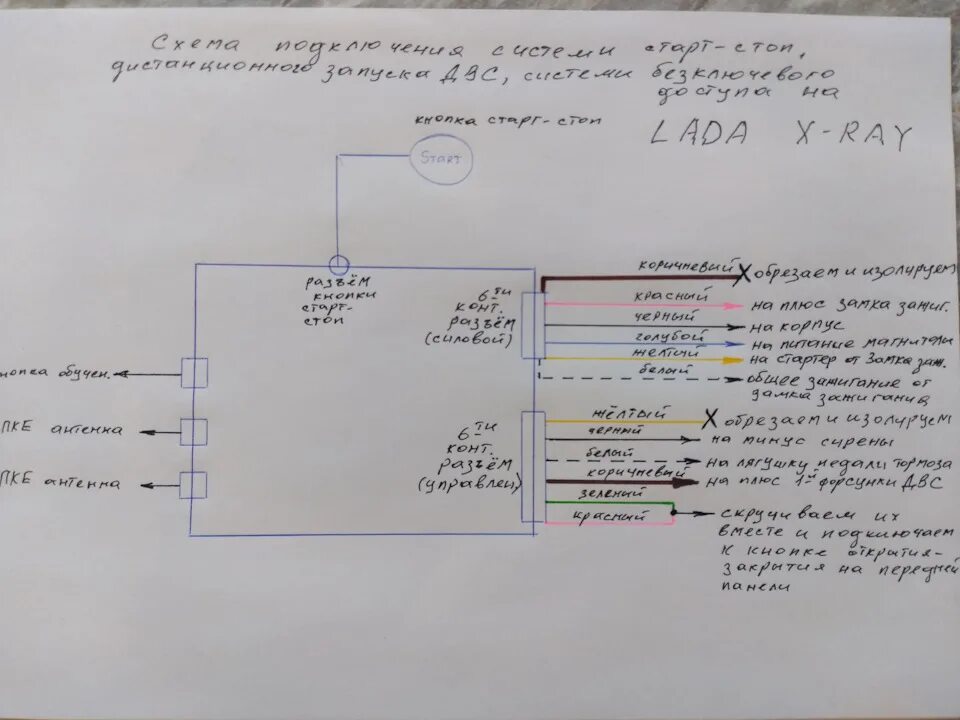 Схема подключения системы старт-стоп,
дистанционного запуска ДВС, системы безключевого
доступа на
LADA X-RAY
кнопка старт-стоп
START
разъём
кнопки
старт-
стоп
6-ти
конт.
разъём
(силовой)
коричневый X обрезаем и изолируем
красный на плюс замка зажиг.
черный на корпус
голубой на питание магнитолы
жёлтый на стартер от замка заж.
белый общее зажигание от
замка зажигания
нопка обучен.
ПКЕ антенна
ПКЕ антенна
6-ти
конт.
разъём
(управлен)
жёлтый X обрезаем и изолируем
черный на минус сирены
белый на лягушку педали тормоза
коричневый на плюс 1-й форсунки ДВС
зеленый
красный скручиваем их
вместе и подключаем
к кнопке открытия-
закрытия на передней
панели